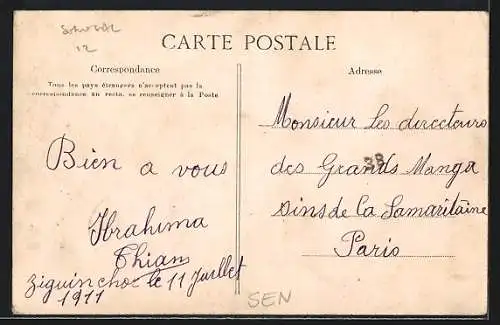 Senegal
12
CARTE POSTALE
Correspondance
Tous les pays étrangers n'acceptent pas la
correspondance au recto, se renseigner à la Poste
Bien a vous
Ibrahima
Thiam
Ziguinchor le 11 Juillet
1911
Adresse
Monsieur les directeurs
des Grands Manga
Sins de la Samaritaine
Paris
SEN